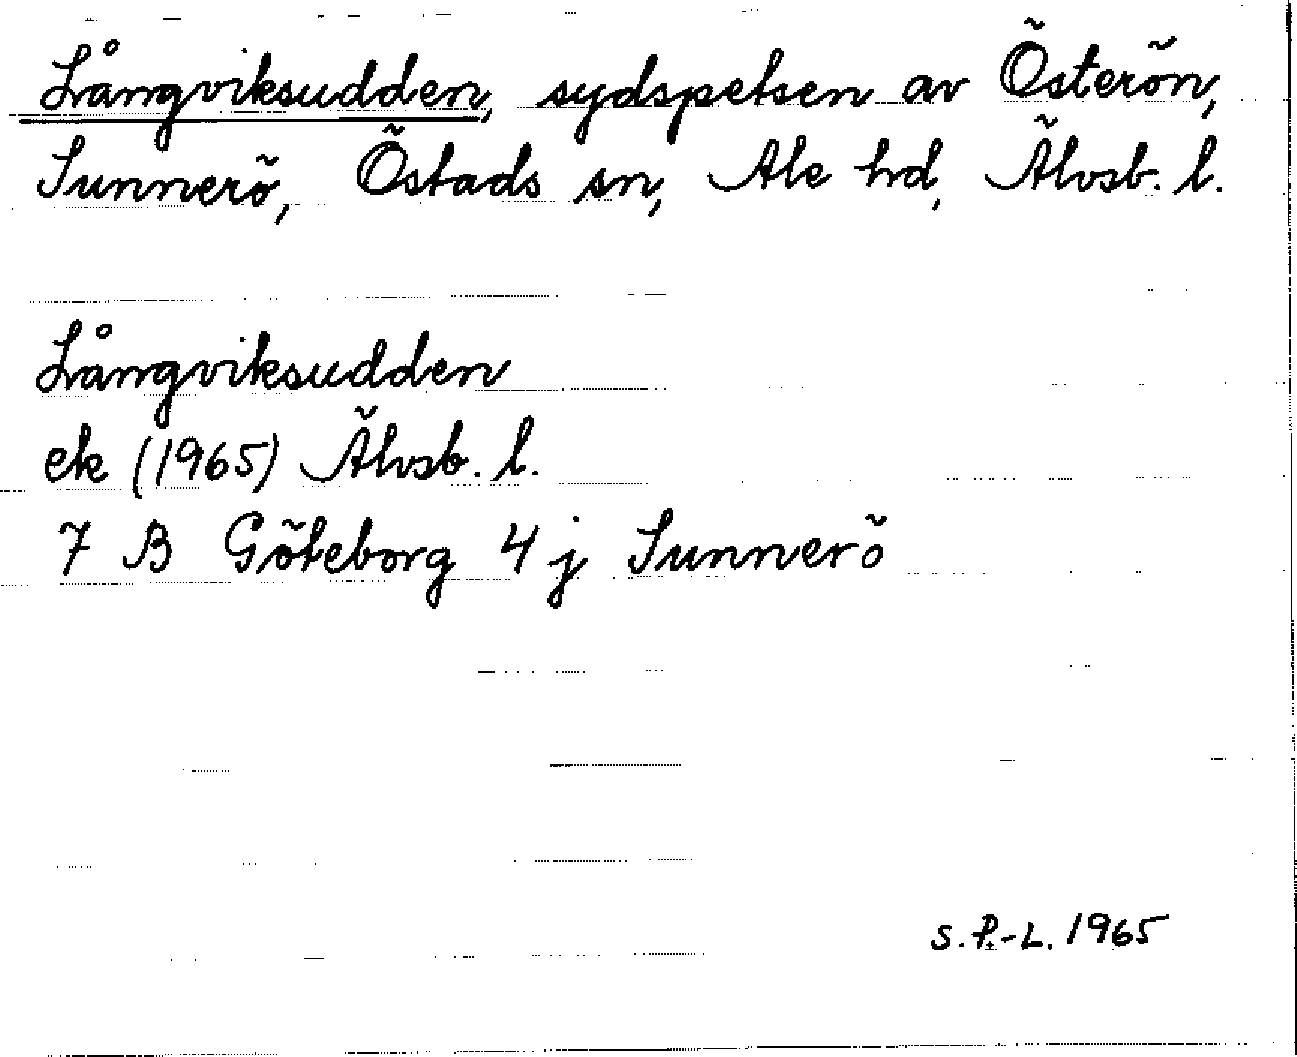 Långviksudden, sydspetsen av Österön,
Sunnerö, Östads sn, Ale hd, Älvsb. l.
Långviksudden
ek (1965) Älvsb. l.
7 B Göteborg 4 j Sunnerö
S.P.-L. 1965